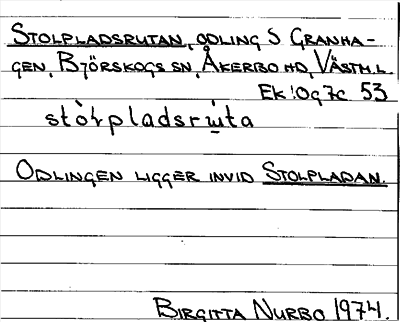 STOLPLADSRUTAN, ODLING S GRANHA-
GEN, BJÖRSKOGS SN, ÅKERBO HD, VÄSTM.L.
EK:0g7c 53
stòɫpladsrẁ̱ta
ODLINGEN LIGGER INVID STOLPLADAN.
BIRGITTA NURBO 1974.